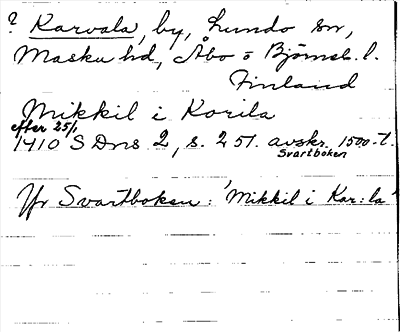 ? Karvala, by, Lundo sn,
Masku hd, Åbo o Björneb. l.
Finland
Mikkil i Korila
efter 25/1
1410 SDns 2, s. 251. avskr. 1500-t.
Svartboken
Jfr Svartboken: 'Mikkil i Kar:la'